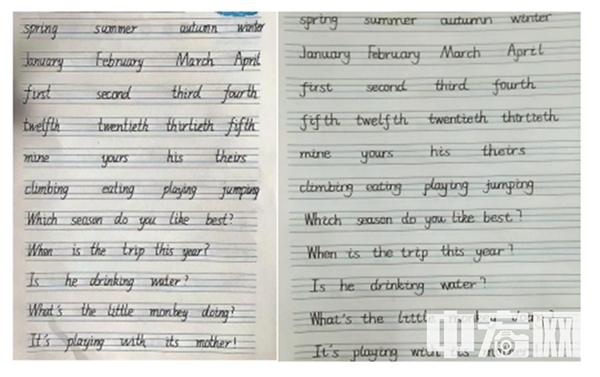 spring summer autumn winter
January February March April
first second third fourth
twelfth twentieth thirtieth fifth
mine yours his theirs
climbing eating playing jumping
Which season do you like best?
When is the trip this year?
Is he drinking water?
What's the little monkey doing?
It's playing with its mother!
spring summer autumn winter
January February March April
first second third fourth
fifth twelfth twentieth thirtieth
mine yours his theirs
climbing eating playing jumping
Which season do you like best?
When is the trip this year?
Is he drinking water?
What's the little
It's playing with its
中宏网